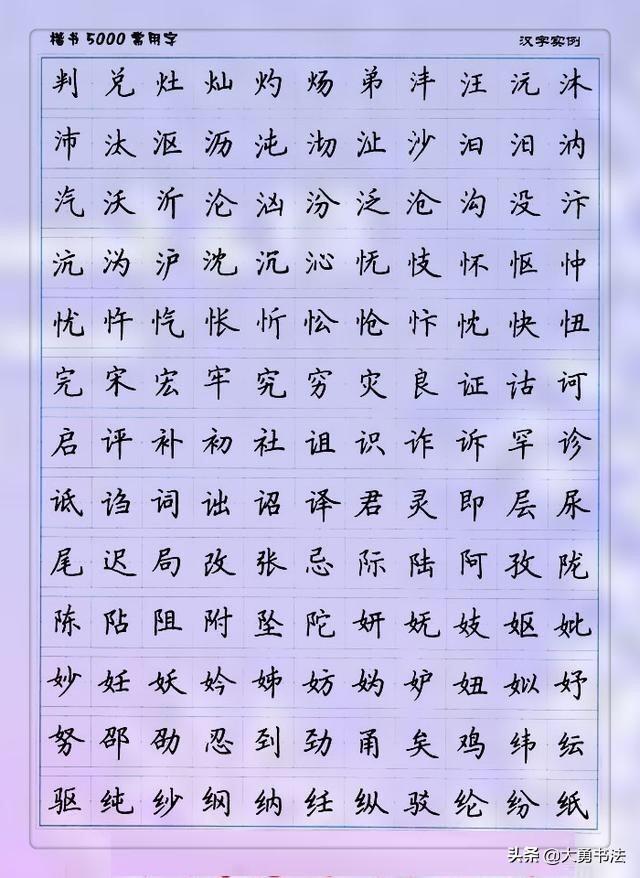 楷书5000常用字 汉字实例
判兑灶灿灼炀弟沣汪沅沐
沛汰沤沥沌沏沚沙汩汨汭
汽沃沂沦汹汾泛沧沟没汴
沆沩沪沈沉沁怃忮怀怄忡
忧忤忾怅忻忪怆忭忱快忸
完宋宏牢究穷灾良证诂诃
启评补初社诅识诈诉罕诊
诋诌词诎诏译君灵即层尿
尾迟局改张忌际陆阿孜陇
陈阽阻附坠陀妍妩妓妪妣
妙妊妖妗姊妨妫妒妞姒妤
努邵劭忍到劲甬矣鸡纬纭
驱纯纱纲纳纴纵驳纶纷纸
头条@大勇书法